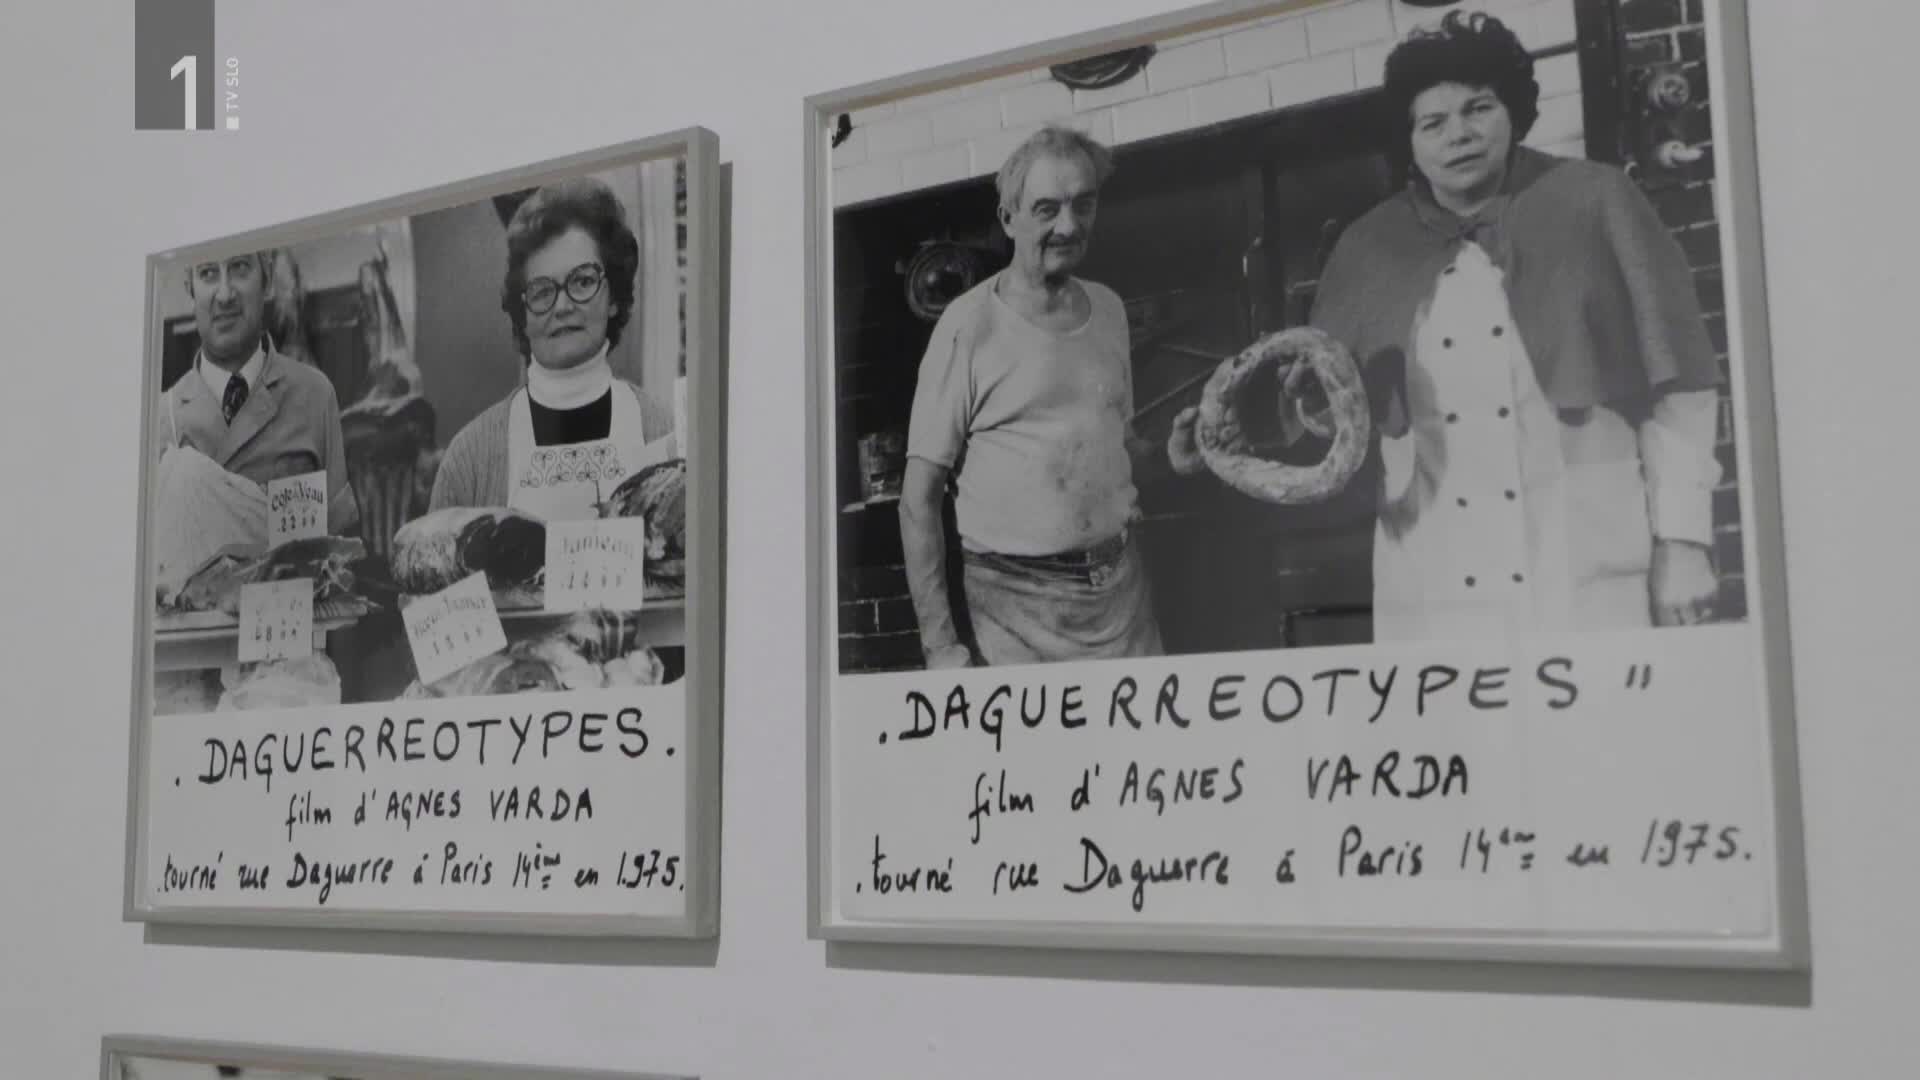 1
TV SLO
Côte Veau
Jambon
. DAGUERREOTYPES .
film d'AGNES VARDA
. tourné rue Daguerre à Paris 14ème en 1975.
. DAGUERREOTYPES "
film d'AGNES VARDA
. tourné rue Daguerre à Paris 14ème en 1975.